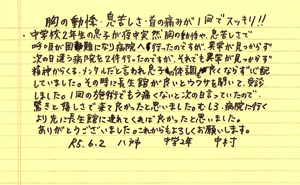 胸の動悸・息苦しさ・首の痛みが1回でスッキリ!!
・中学校2年生の息子が夜中突然、胸の動悸や、息苦しさで
呼吸が困難になり病院へ行ったのですが、異常が見つからず
次の日違う病院も2件行ったのですが、それでも異常が見つからず
精神からくる、メンタルだと言われ息子も体調が良くならずに心配
していました。その時に長生館が良いとウワサを聞いて、受診
しました。1回の施術でもう痛くないと次の日言っていたので、
驚きと嬉しさで来て良かったと思いました。むしろ、病院に行く
より先に長生館に連れてくれば良かったと思いました。
ありがとうございました。これからもよろしくお願いします。
R5.6.2 中学2年 中村